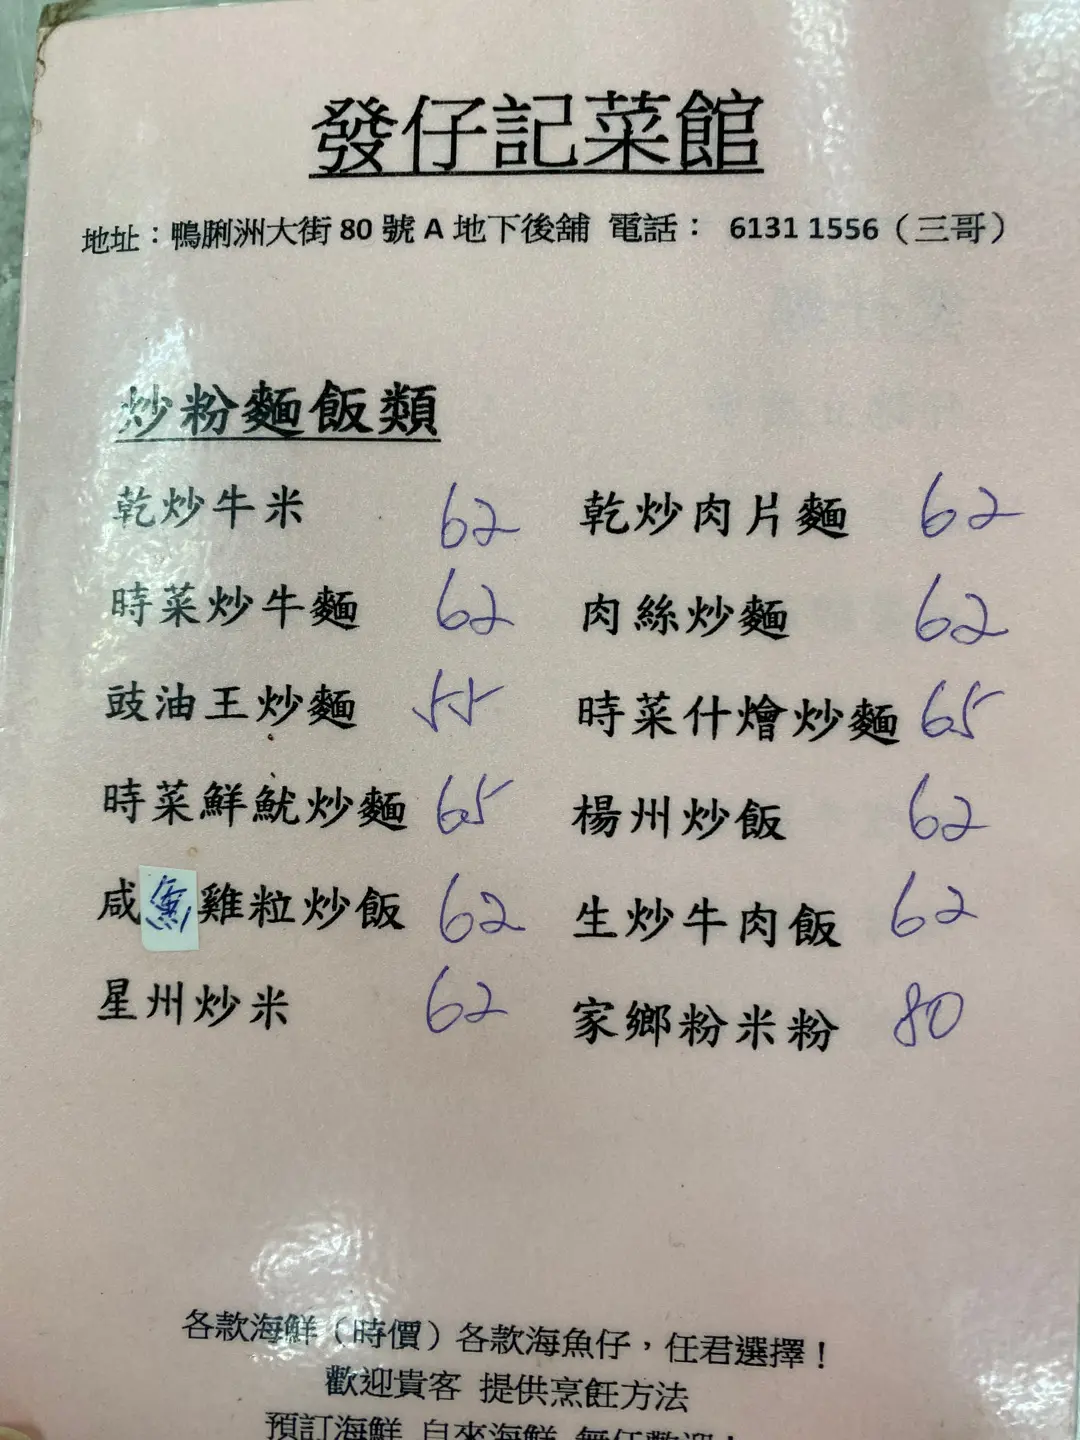 發仔記菜館
地址：鴨脷洲大街 80 號 A 地下後舖 電話： 6131 1556（三哥）
炒粉麵飯類
乾炒牛米 62 乾炒肉片麵 62
時菜炒牛麵 62 肉絲炒麵 62
豉油王炒麵 55 時菜什燴炒麵 65
時菜鮮魷炒麵 65 楊州炒飯 62
咸魚雞粒炒飯 62 生炒牛肉飯 62
星州炒米 62 家鄉粉米粉 80
各款海鮮（時價）各款海魚仔，任君選擇！
歡迎貴客 提供烹飪方法
預訂海鮮 自來海鮮 無任歡迎！